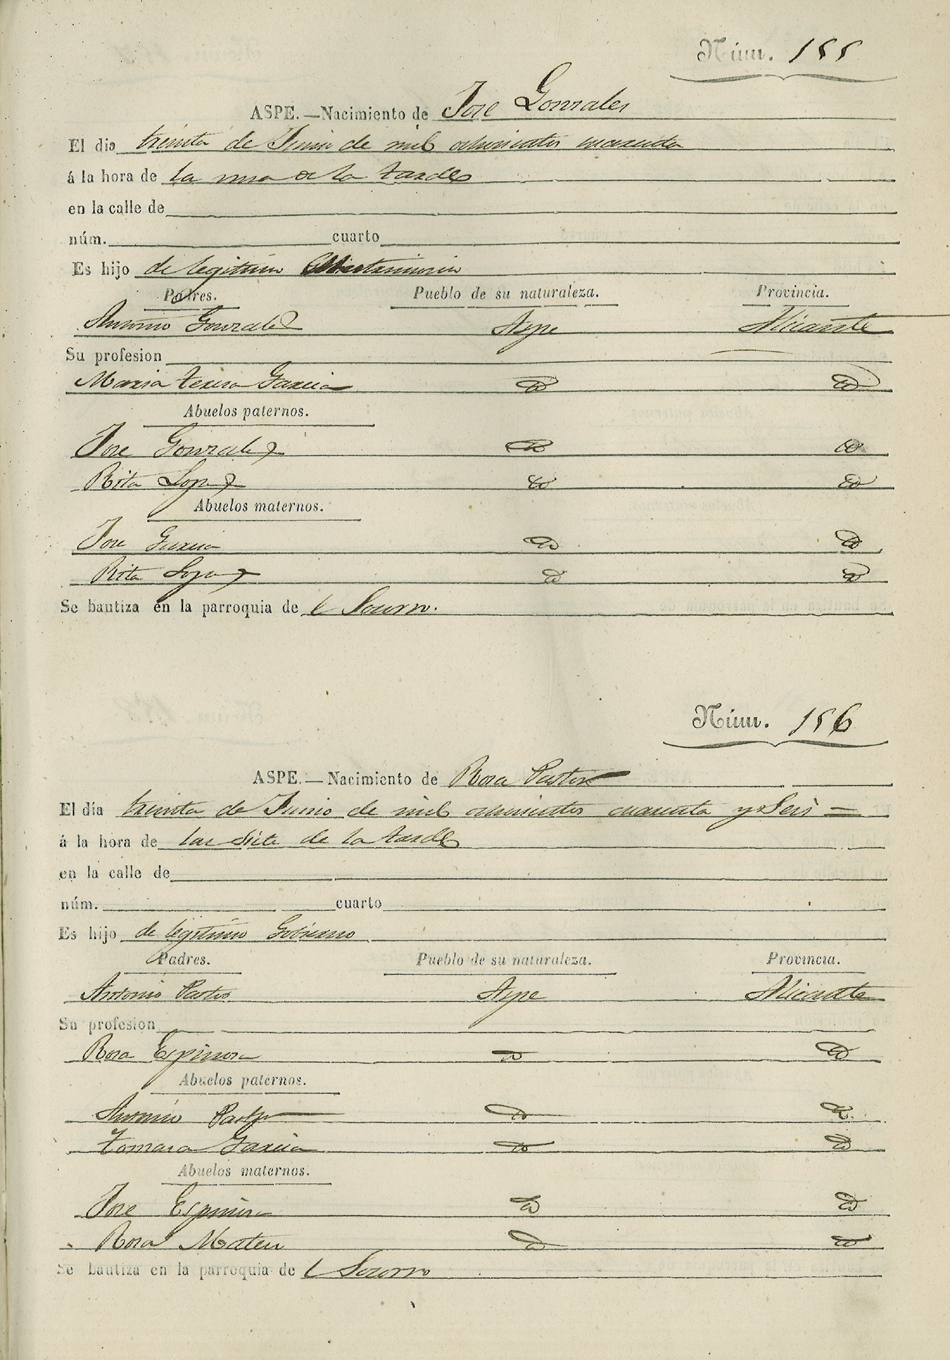 Núm. 155
ASPE.—Nacimiento de Jose Gonzales
El dia treinta de Junio de mil ochocientos cuarenta
á la hora de la una de la tarde
en la calle de
núm. cuarto
Es hijo de legitimo Matrimonio
Padres. Pueblo de su naturaleza. Provincia.
Antonio Gonzalez Aspe Alicante
Su profesion
Maria Teresa Garcia
Abuelos paternos.
Jose Gonzalez
Rita Lopez
Abuelos maternos.
Jose Garcia
Rita Lopez
Se bautiza en la parroquia de l Socorro.
Núm. 156
ASPE.—Nacimiento de Rosa Pastor
El día treinta de Junio de mil ochocientos cuarenta y seis =
á la hora de las siete de la tarde
en la calle de
núm. cuarto
Es hijo de legitimo
Padres. Pueblo de su naturaleza. Provincia.
Antonio Pastor Aspe Alicante
Su profesion
Rosa Espinosa
Abuelos paternos.
Antonio Pastor
Tomasa Garcia
Abuelos maternos.
Jose Espinosa
Rosa Mateu
Se bautiza en la parroquia de l Socorro